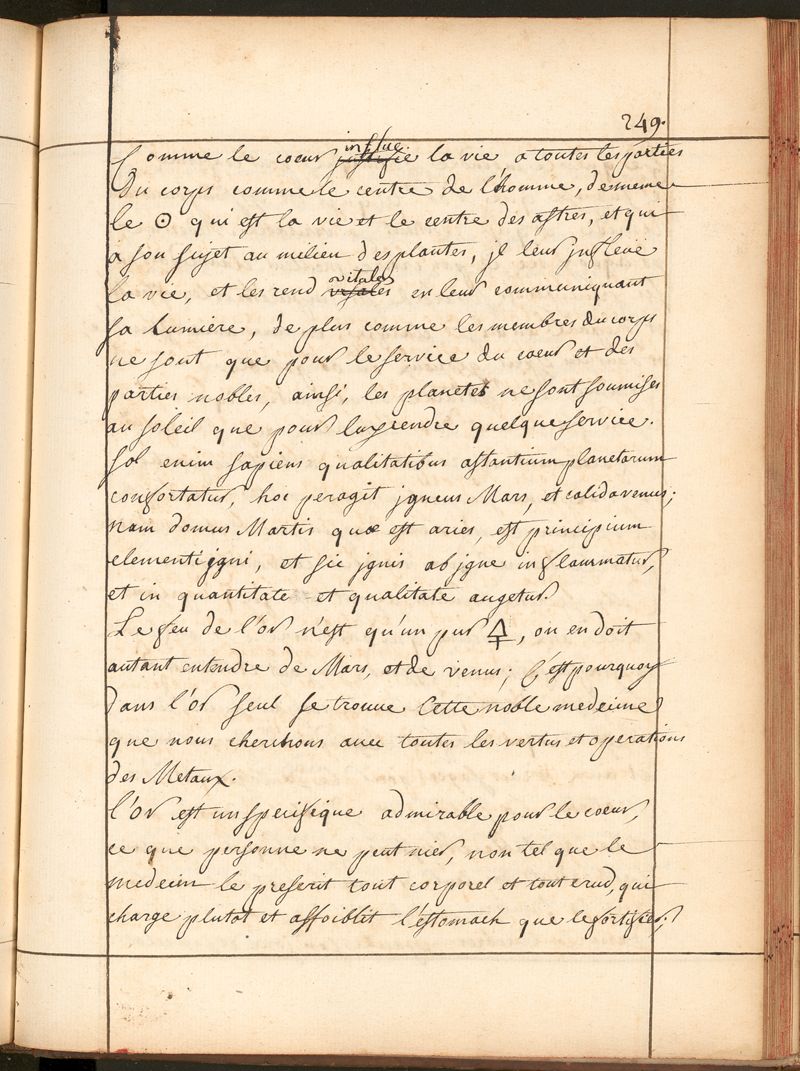 249.
influe
Comme le coeur justifie la vie a toutes les parties
Du corps comme le centre de l'homme, de meme
le ☉ qui est la vie et le centre des astres, et qui
a son sujet au milieu des plantes, jl leur jnfleue
vitales
la vie, et les rend en leur communiquant
sa lumiere, de plus comme les membres du corps
ne sont que pour le service du coeur et des
parties nobles, ainsi, les planetes ne sont soumises
au soleil que pour luy rendre quelque service.
Sol enim sapiens qualitatibus astantium planetarum
confortatur, hoc peragit jgneus Mars, et calida venus;
nam domus Martis quæ est aries, est principium
elementi jgni, et sic jgnis ab jgne inflammatur,
et in quantitate et qualitate augetur.
Le feu de l'or n'est qu'un pur 🜍, on en doit
autant entendre de Mars, et de venus; C'est pourquoy
dans l'or seul se trouue Cette noble medecine
que nous cherchons auec toutes les vertus et operations
des Metaux.
l'Or est un specifique admirable pour le coeur,
ce que personne ne peut nier, non tel que le
medecin le prescrit tout corporel et tout crud, qui
charge plutot et affoiblit l'estomach que le fortifier;